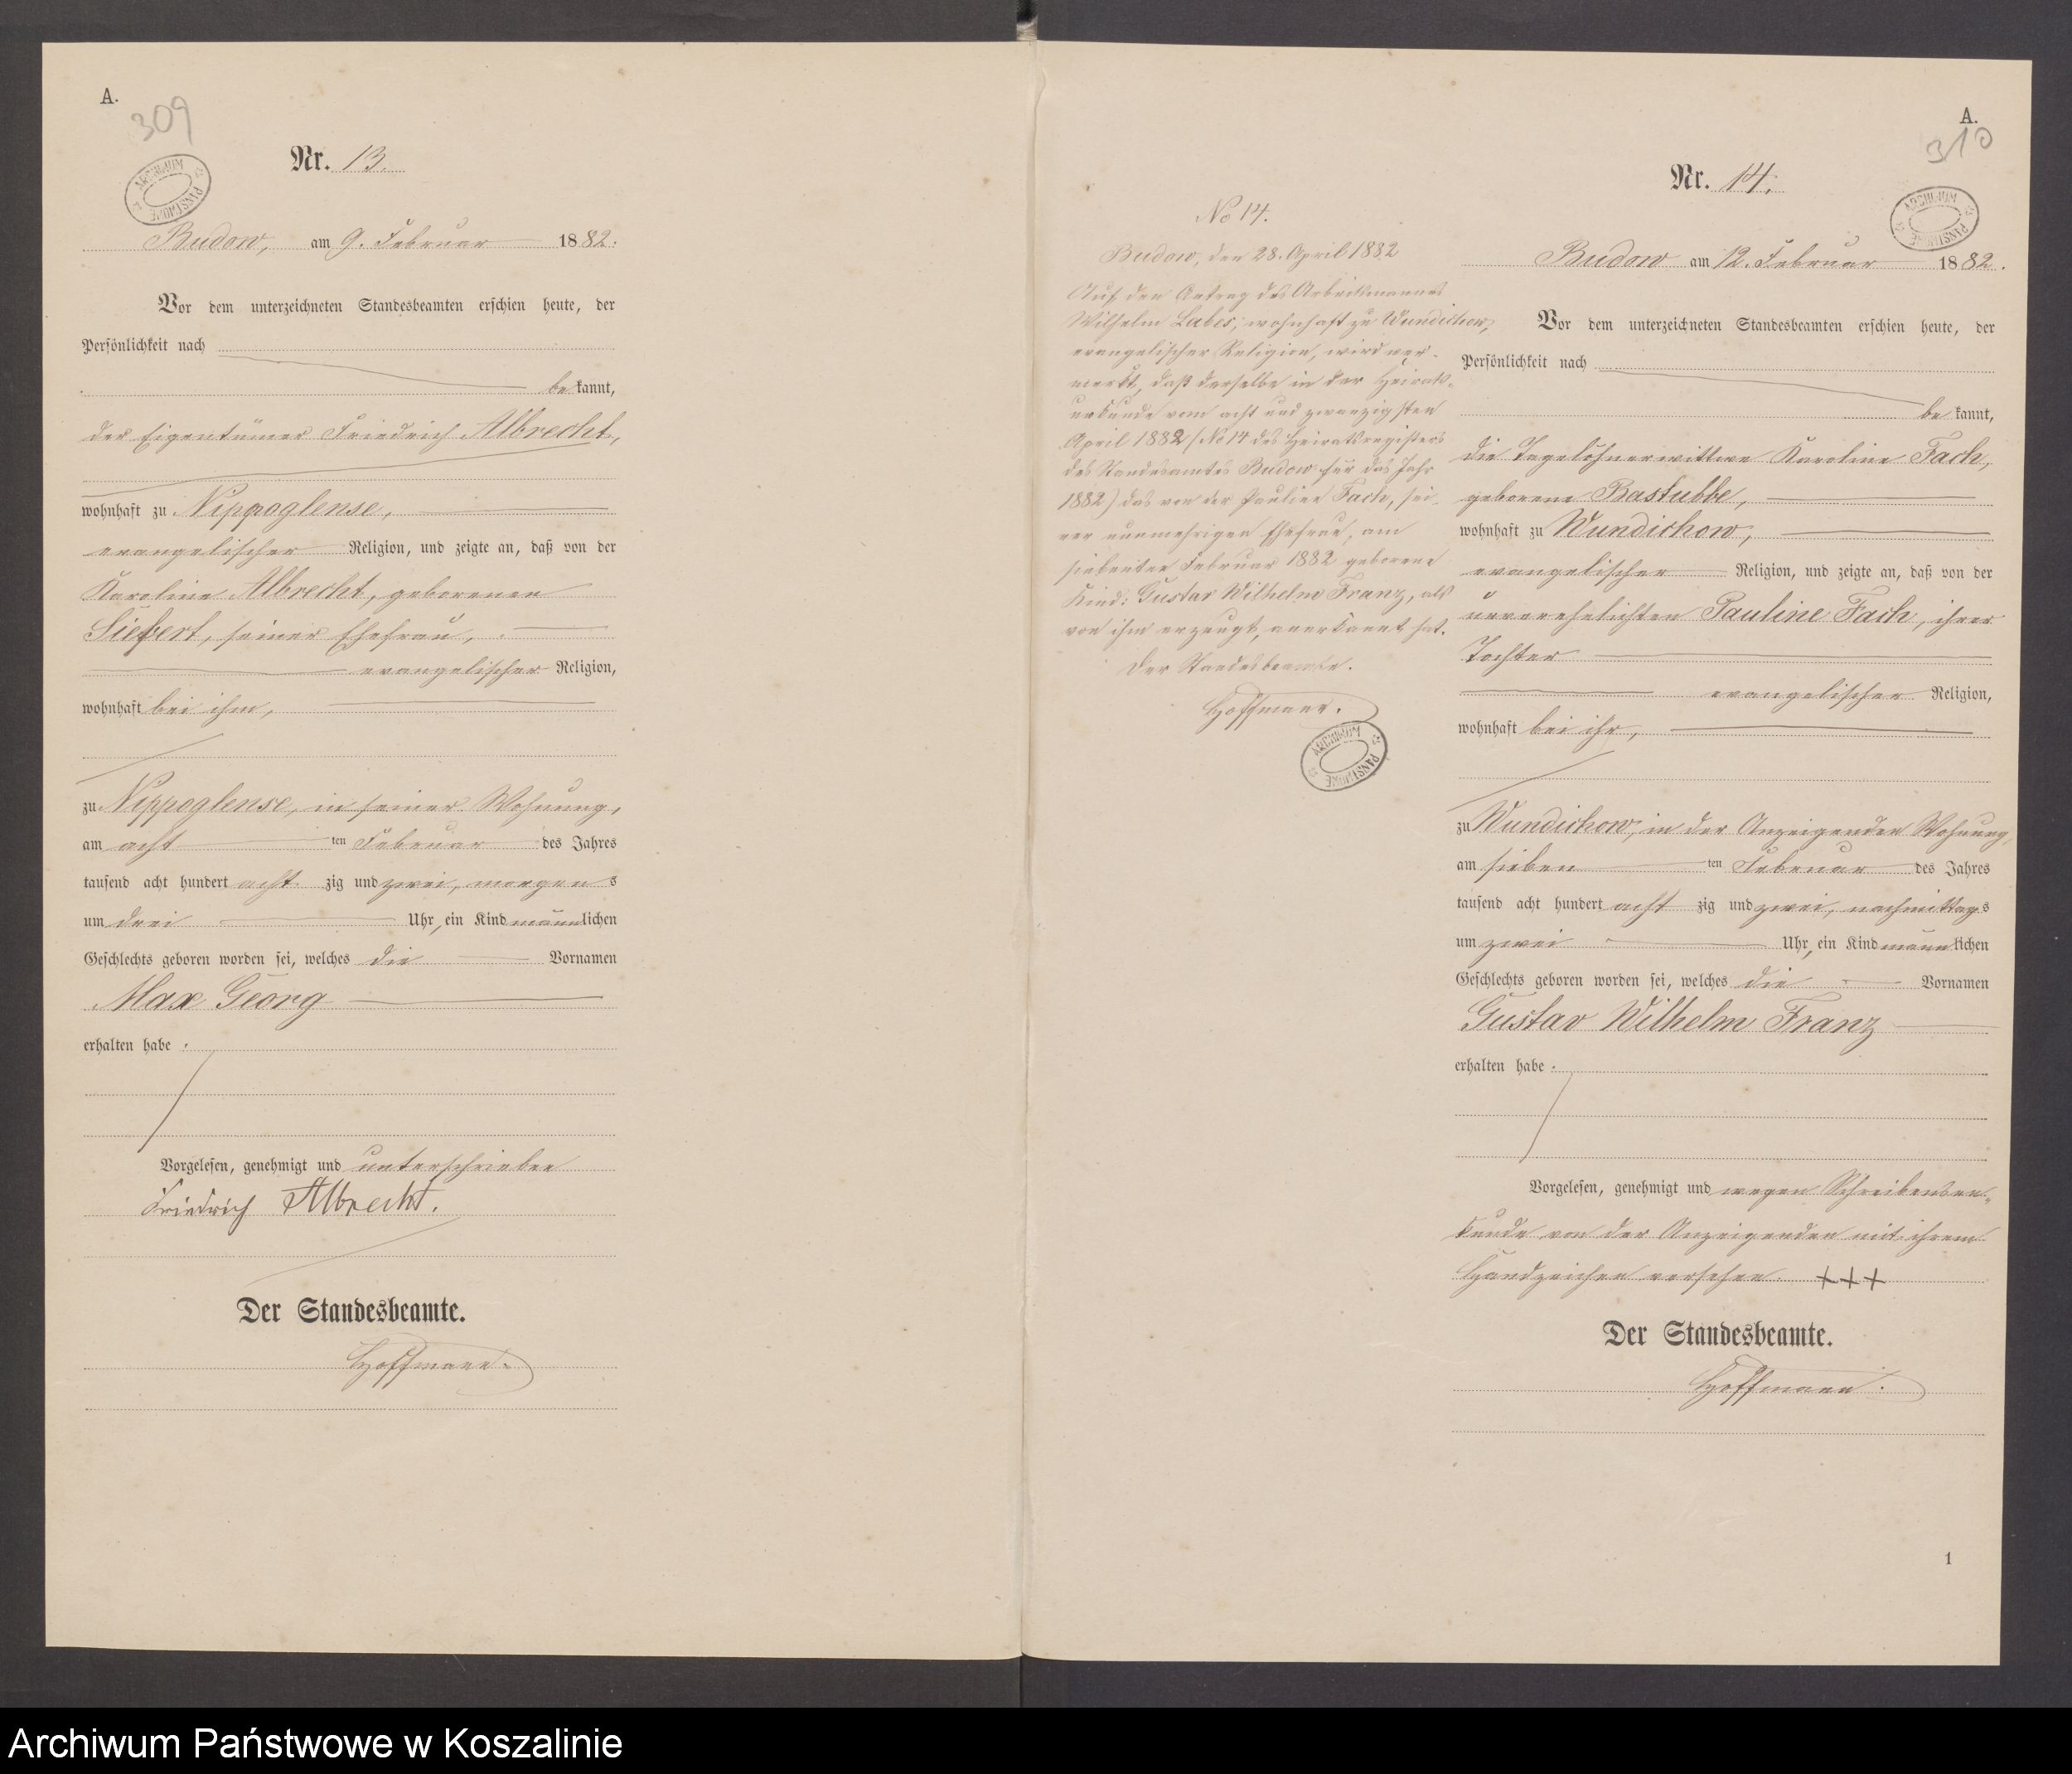 A.
309
ARCHIWUM PAŃSTWOWE
Nr. 13.
Budow, am 9. Februar 1882.
Vor dem unterzeichneten Standesbeamten erschien heute, der
Persönlichkeit nach
be kannt,
der Eigentümer Friedrich Albrecht,
wohnhaft zu Nippoglense,
evangelischer Religion, und zeigte an, daß von der
Karoline Albrecht, geborenen
Siefert, seiner Ehefrau,
evangelischer Religion,
wohnhaft bei ihm,
zu Nippoglense, in seiner Wohnung,
am acht ten Februar des Jahres
tausend acht hundert acht zig und zwei, morgens
um drei Uhr, ein Kind männlichen
Geschlechts geboren worden sei, welches die Vornamen
Max Georg
erhalten habe.
Vorgelesen, genehmigt und unterschrieben
Friedrich Albrecht.
Der Standesbeamte.
Hoffmann.
No 14.
Budow, den 28. April 1882
Auf den Antrag des Arbeitsmannes
Wilhelm Labes, wohnhaft zu Wundichow,
evangelischer Religion, wird ver-
merkt, daß derselbe in der Heirats-
urkunde vom acht und zwanzigsten
April 1882 (No 14 des Heiratsregisters
des Standesamtes Budow für das Jahr
1882) das von der Pauline Fach, sei-
ner nunmehrigen Ehefrau, am
siebenten Februar 1882 geborene
Kind: Gustav Wilhelm Franz, als
von ihm erzeugt, anerkannt hat.
Der Standesbeamte.
Hoffmann.
ARCHIWUM PAŃSTWOWE
A.
310
Nr. 14.
ARCHIWUM PAŃSTWOWE
Budow am 12. Februar 1882.
Vor dem unterzeichneten Standesbeamten erschien heute, der
Persönlichkeit nach
be kannt,
die Tagelöhnerwittwe Karoline Fach,
geborene Bastubbe,
wohnhaft zu Wundichow,
evangelischer Religion, und zeigte an, daß von der
unverehelichten Pauline Fach, ihrer
Tochter
evangelischer Religion,
wohnhaft bei ihr,
zu Wundichow, in der Anzeigenden Wohnung,
am sieben ten Februar des Jahres
tausend acht hundert acht zig und zwei, nachmittags
um zwei Uhr, ein Kind männlichen
Geschlechts geboren worden sei, welches die Vornamen
Gustav Wilhelm Franz
erhalten habe.
Vorgelesen, genehmigt und wegen Schreibensun-
kunde von der Anzeigenden mit ihrem
Handzeichen versehen. +++
Der Standesbeamte.
Hoffmann.
1
Archiwum Państwowe w Koszalinie